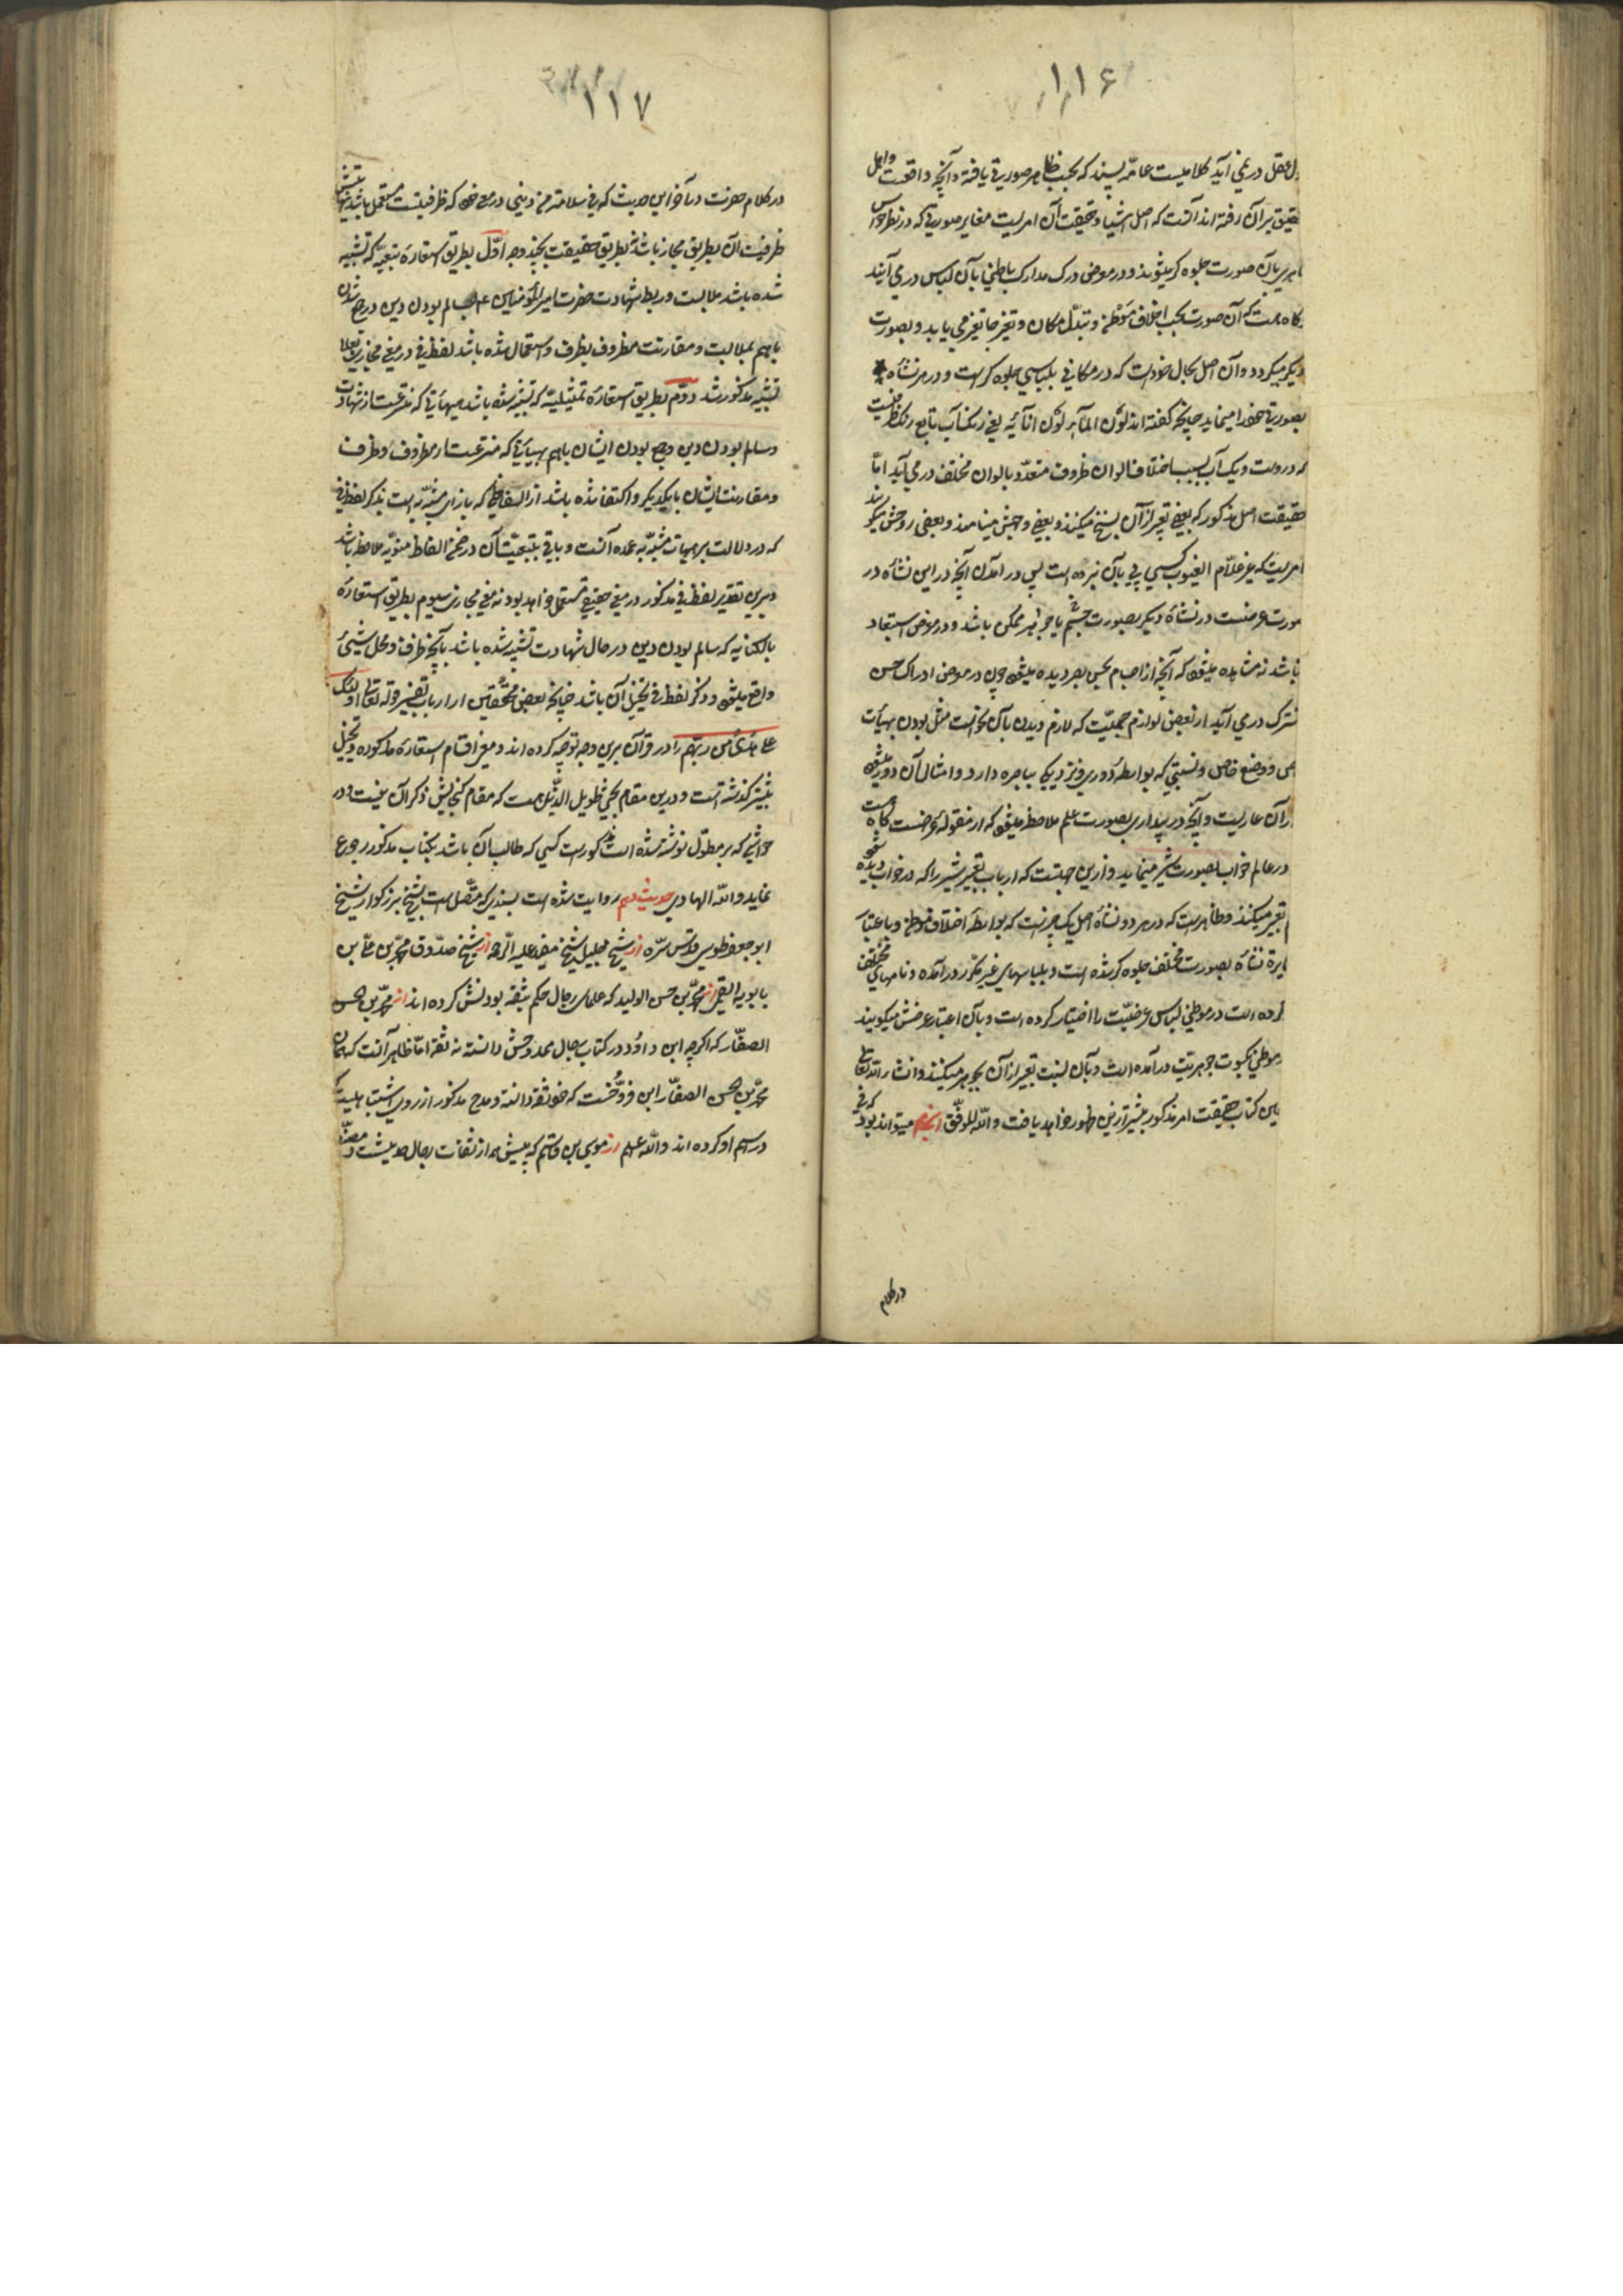 ۱۱۶
عقل در نمی آید کلامیست عامه پسند که بحسب ظاهر صورتی یافته و آنچه واقعست و اهل
تحقیق بر آن رفته اند آنست که اصل اشیا و حقیقت آن امریست مغایر صورتی که در نظر حواس
بآن صورت جلوه گر میشوند و در معرض درک مدارک باطنی بآن لباس در می آیند
گاه هست که آن صورت بحسب اختلاف موطن و تبدل مکان و تغیر جا تغیر می یابد و بصورت
دیگر میگردد و آن اصل بحال خود است که در مکانی بلباسی جلوه گر است و در هر نشأه
بصورتی خود را مینماید چنانچه گفته اند لون المآء لون انآئه یعنی رنگ آب تابع رنگ ظرفیست
که دروست و یک آب بسبب اختلاف الوان ظروف متعدد بالوان مختلف در می آید امّا
حقیقت اصل مذکور که بعضی تعبیر از آن بسنخ میکنند و بعضی وجهش مینامند و بعضی روحش میگویند
امریست که غیر علّام الغیوب کسی پی بآن نبرده است پس در آمدن آنچه در این نشأه در
صورت عرضست در نشأه دیگر بصورت جسم یا جوهر ممکن باشد و در معرض استبعاد
نباشد نه مشاهده میشود که آنچه از اجسام بحس بصر دیده میشود چون در معرض ادراک حس
مشترک در می آید از بعضی لوازم جسمیّت که لازم دیدن بآن نحو است مثل بودن بهیأت
خاص و وضع خاص و نسبتی که بواسطهٔ دوری و نزدیکی بباصره دارد و امثال آن دور میشود
از آن عاریست و آنچه در بیداری بصورت علم ملاحظه میشود که از مقوله عرضست گاه هست
در عالم خواب بصورت شیر مینماید و ازین جهتست که ارباب تعبیر شیر را که در خواب دیده شود
تعبیر میکنند و ظاهر است که در هر دو نشأه اصل یک چیزست که بواسطهٔ اختلاف موطن و باعتبار
مغایرة نشأة بصورت مختلف جلوه گر شده است و بلباسهای غیر مکرر در آمده و نامهای مختلف
کرده است در موطنی لباس عرضیّت را اختیار کرده است و بآن اعتبار عرضش میگویند
در موطنی بکسوت جوهریّت در آمده است و بآن نسبت تعبیر از آن بجوهر میکنند و انشاء الله تعالی
این کتاب حقیقت امر مذکور بیشتر ازین ظهور خواهد یافت و الله الموفّق انجام میتواند بود که فی
در کلام
۱۱۷
در کلام حضرت در آخر این حدیث که فی سلامة من دینی در معنی خود که ظرفیتست مستعمل باشد
ظرفیت آن بطریق مجاز باشد نه بطریق حقیقت بچند وجه اوّل بطریق استعارهٔ تبعیّه که تشبیه
شده باشد ملابست و ربط شهادت حضرت امیر المؤمنین ع بسالم بودن دین در جمع شدن
باهم بملابست و مقارنت مظروف بظرف و استعمال شده باشد لفظ فی در معنی مجازی بعلاقه
تشبیه مذکور شد دوّم بطریق استعارهٔ تمثیلیّه که تشبیه شده باشد هیأتی که منتزعست از شهادت
و سالم بودن دین و جمع بودن ایشان باهم بهیأتی که منتزعست از مظروف و ظرف
و مقارنت ایشان با یکدیگر و اکتفا شده باشد از الفاظی که بازای مشبه به است بذکر لفظ فی
که در دلالت بر هیأت مشبّه به عمده آنست و باقی بتبعیّت آن در ضمن الفاظ منویّه ملاحظه باشد
و برین تقدیر لفظ فی مذکور در معنی حقیقی مستعمل خواهد بود نه معنی مجازی سیوم بطریق استعارهٔ
بالکنایه که سالم بودن دین در حال شهادت تشبیه شده باشد بآنچه ظرف و محل شیئ
واقع میشود و ذکر لفظ فی تخییل آن باشد چنانچه بعضی محققین از ارباب تفسیر قوله تعالی اولئک
علی هدی من ربهم را در قرآن برین وجه توجیه کرده اند و معنی اقسام استعارهٔ مذکوره و تخییل
بیشتر گذشته است و درین مقام بحثی طویل الذّیل هست که مقام گنجایش ذکر آن نیست و در
حواشی که بر مطوّل نوشته شده است مذکور است کسی که طالب آن باشد بکتاب مذکور رجوع
نماید و الله الهادی حدیث دهم روایت شده است بسندی که متّصل است بشیخ بزرگوار شیخ
ابو جعفر طوسی قدّس سرّه از شیخ جلیل شیخ مفید علیه الرحمه از شیخ صدوق محمّد بن علی بن
بابویه القمی از محمّد بن حسن الولید که علمای رجال حکم بثقه بودنش کرده اند از محمّد بن الحسن
الصفّار که اگرچه ابن داوُد در کتاب رجال ممدوحش دانسته نه ثقه امّا ظاهر آنست که همان
محمّد بن الحسن الصفّار ابن فرّوخست که خود ثقه دانسته و مدح مذکور از روی اشتباهیست که
در اسم او کرده اند و الله علم از موسی بن قاسم که پیش همه از ثقات رجال حدیثست و